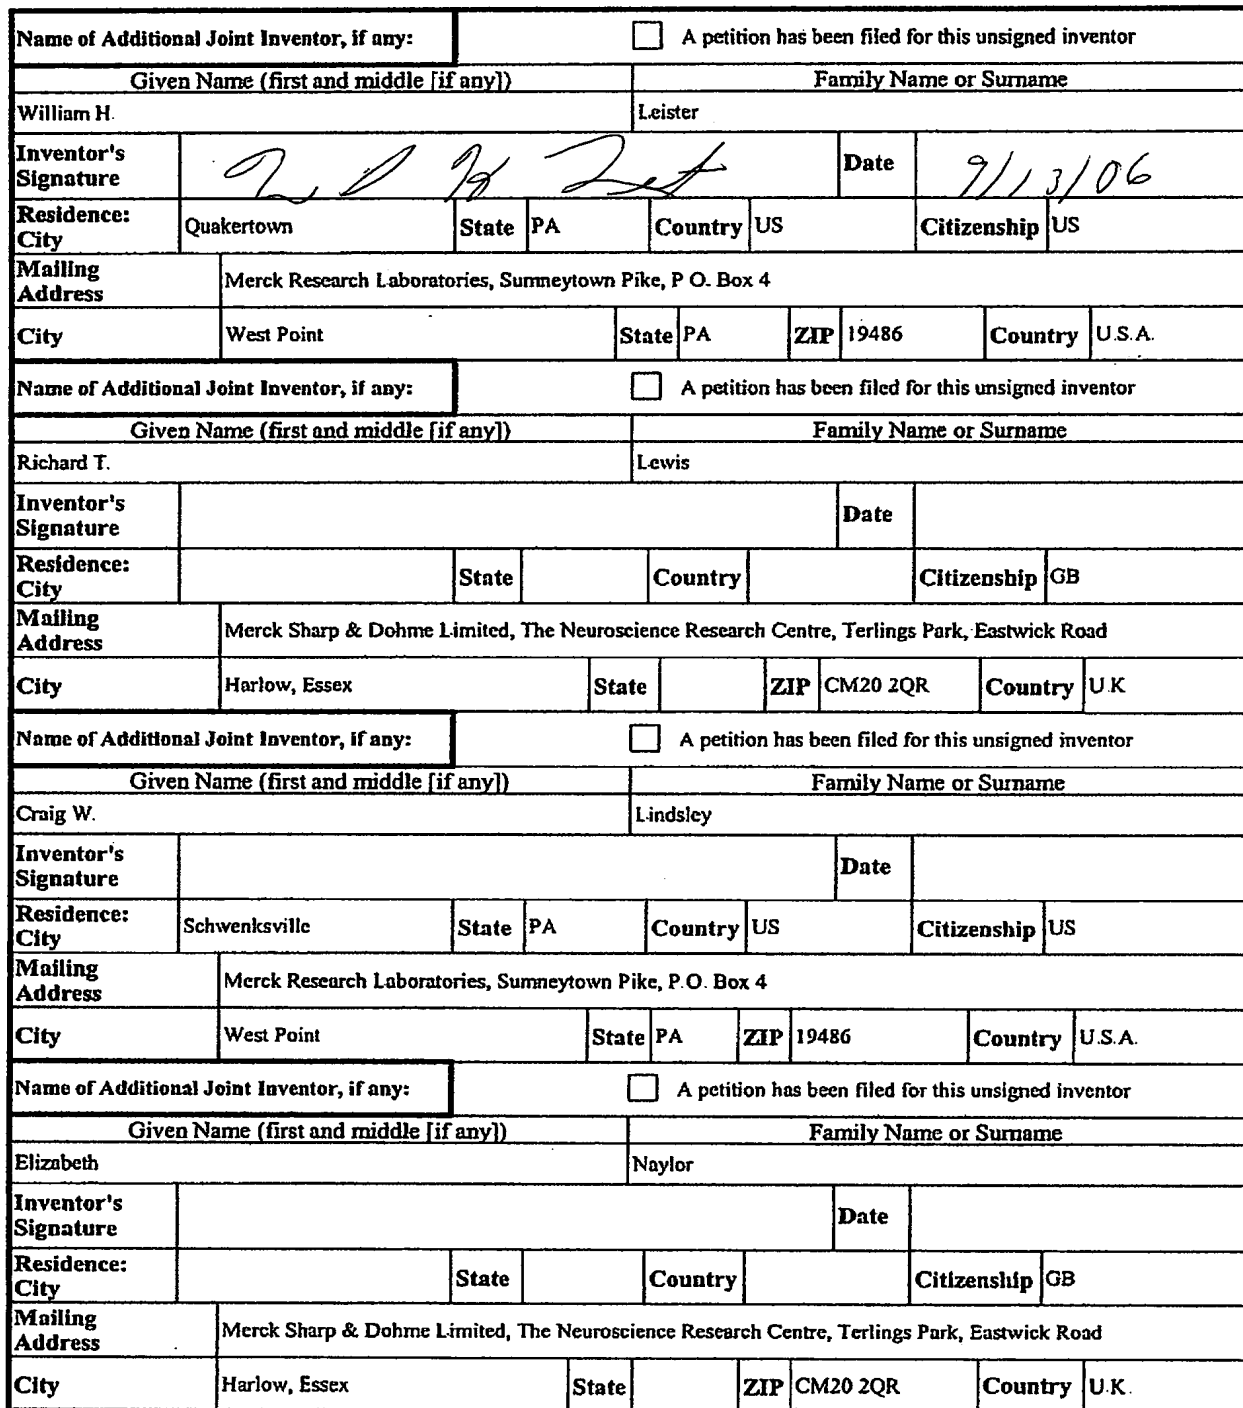 Name of Additional Joint Inventor, if any: A petition has been filed for this unsigned inventor
Given Name (first and middle [if any]) Family Name or Surname
William H. Leister
Inventor's Signature Date 9/13/06
Residence: City Quakertown State PA Country US Citizenship US
Mailing Address Merck Research Laboratories, Sumneytown Pike, P O. Box 4
City West Point State PA ZIP 19486 Country U.S.A.
Name of Additional Joint Inventor, if any: A petition has been filed for this unsigned inventor
Given Name (first and middle [if any]) Family Name or Surname
Richard T. Lewis
Inventor's Signature Date
Residence: City State Country Citizenship GB
Mailing Address Merck Sharp & Dohme Limited, The Neuroscience Research Centre, Terlings Park, Eastwick Road
City Harlow, Essex State ZIP CM20 2QR Country U.K
Name of Additional Joint Inventor, if any: A petition has been filed for this unsigned inventor
Given Name (first and middle [if any]) Family Name or Surname
Craig W. Lindsley
Inventor's Signature Date
Residence: City Schwenksville State PA Country US Citizenship US
Mailing Address Merck Research Laboratories, Sumneytown Pike, P.O. Box 4
City West Point State PA ZIP 19486 Country U.S.A.
Name of Additional Joint Inventor, if any: A petition has been filed for this unsigned inventor
Given Name (first and middle [if any]) Family Name or Surname
Elizabeth Naylor
Inventor's Signature Date
Residence: City State Country Citizenship GB
Mailing Address Merck Sharp & Dohme Limited, The Neuroscience Research Centre, Terlings Park, Eastwick Road
City Harlow, Essex State ZIP CM20 2QR Country U.K.